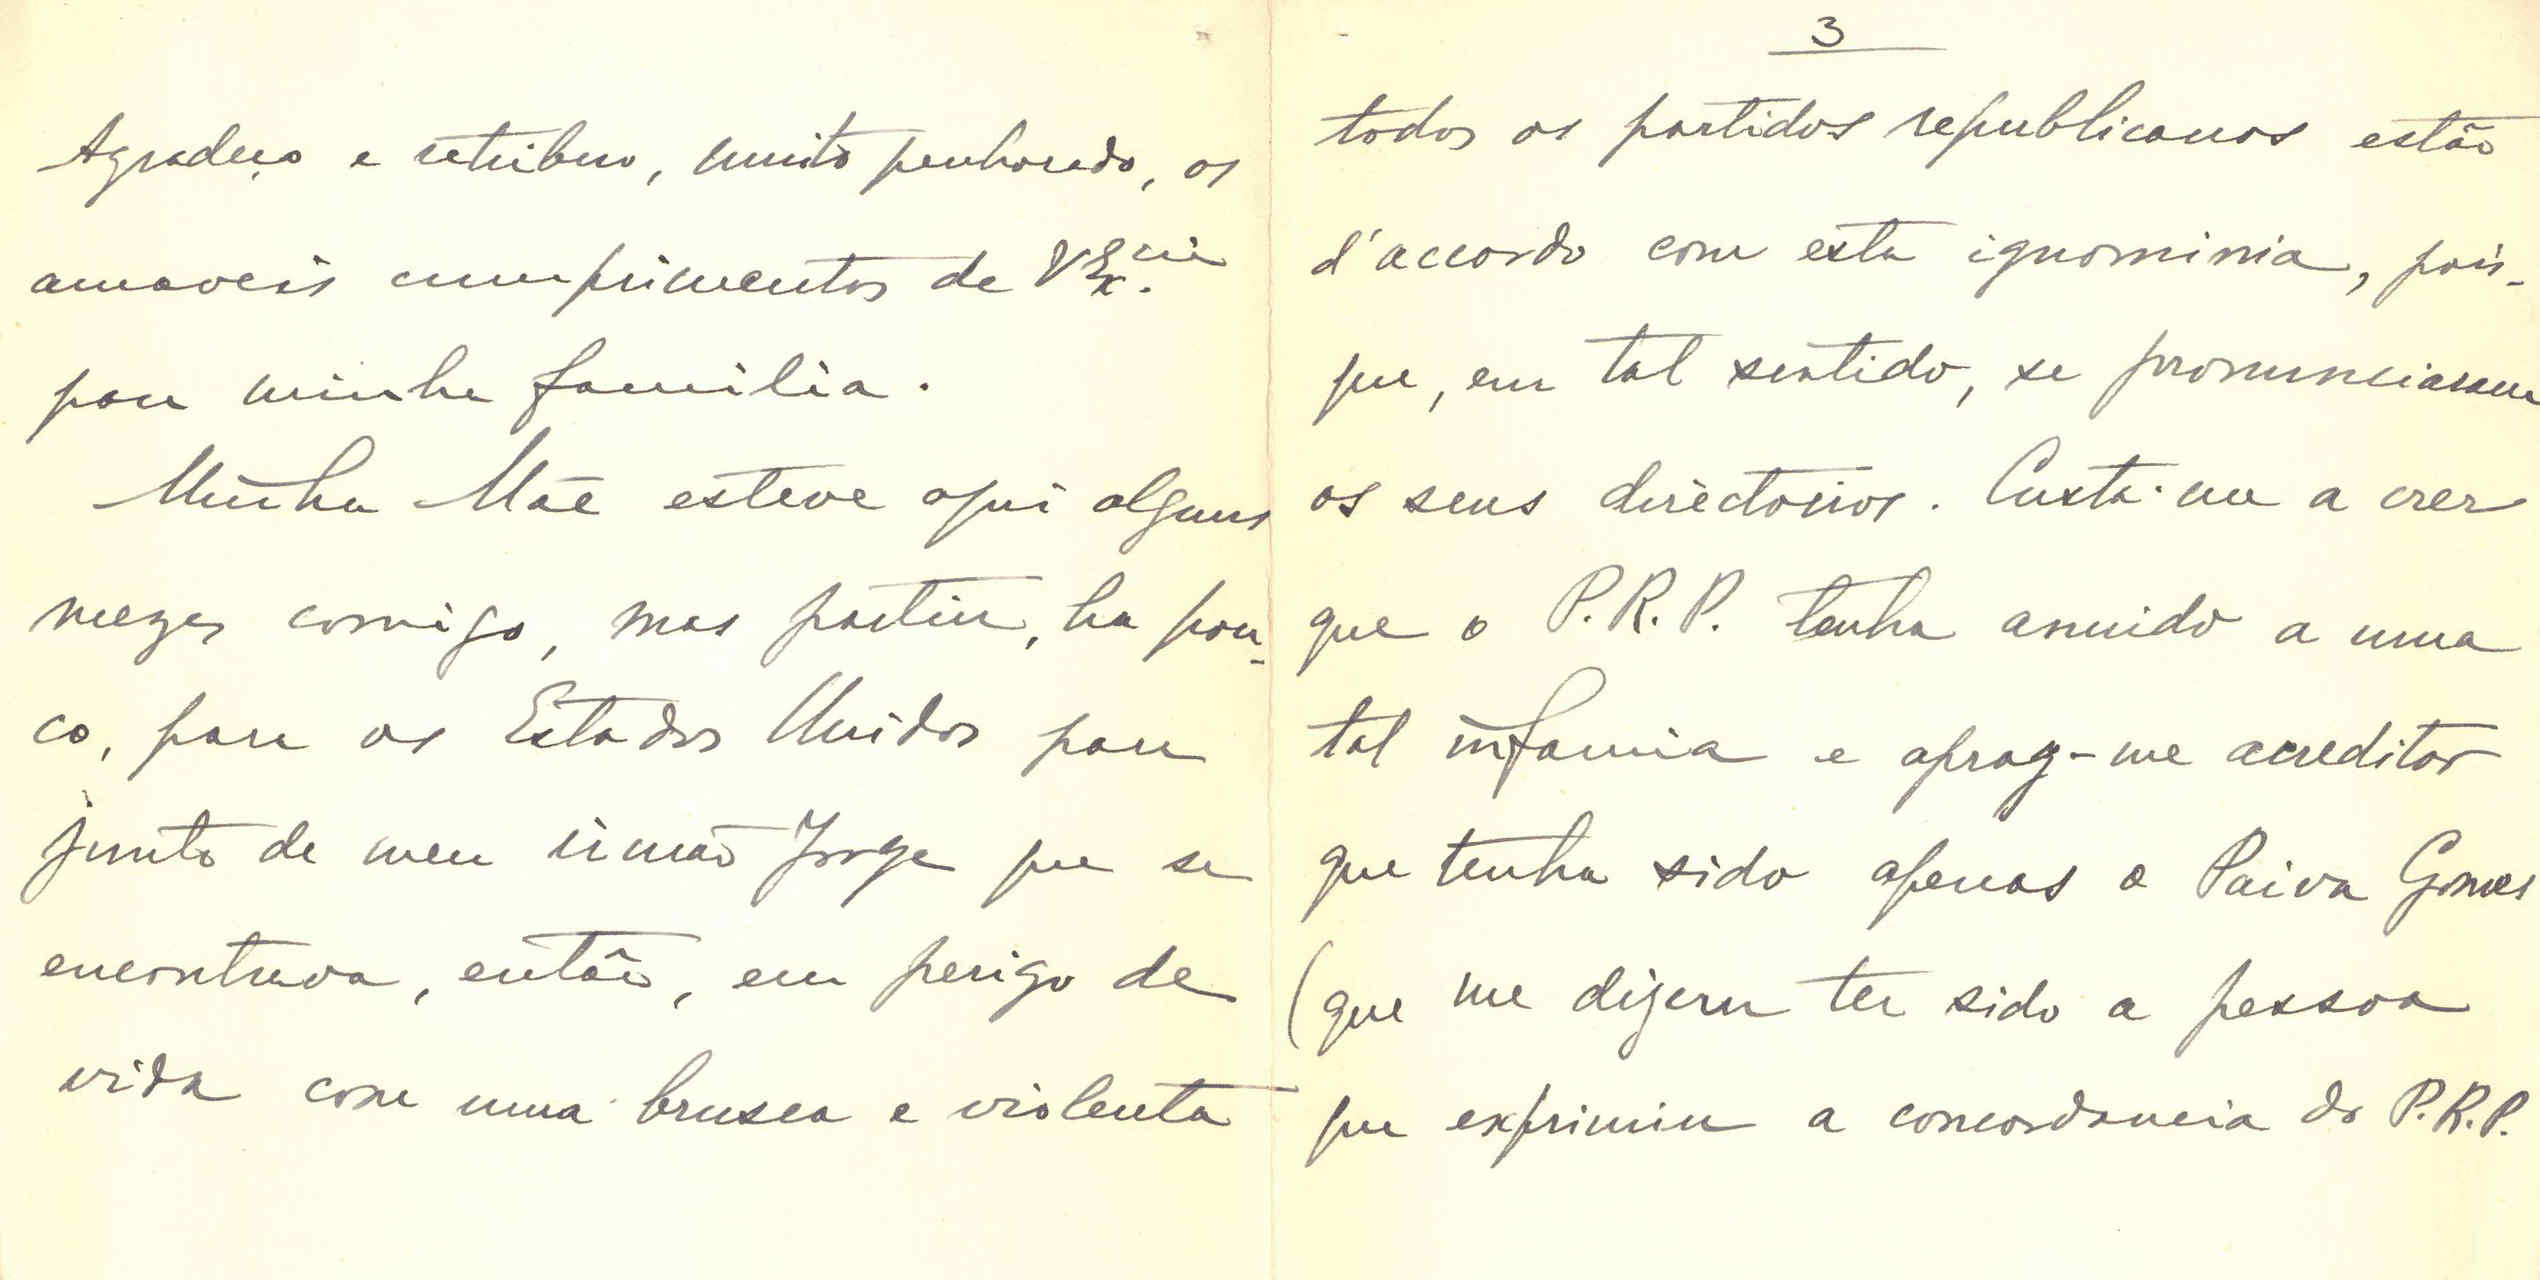 Agradeço e retribuo, muito penhorado, os
amaveis cumprimentos de V Ex.cia
para minha familia.
Minha Mãe esteve aqui alguns
mezes comigo, mas partiu, ha pou-
co, para os Estados Unidos para
junto de meu irmão Jorge que se
encontrava, então, em perigo de
vida com uma brusca e violenta
3
todos os partidos republicanos estão
d'accordo com esta ignominia, pois-
que, em tal sentido, se pronunciaram
os seus directorios. Custa-me a crer
que o P.R.P. tenha anuido a uma
tal infamia e apraz-me acreditar
que tenha sido apenas o Paiva Gomes
(que me dizem ter sido a pessoa
que exprimiu a concordancia do P.R.P.